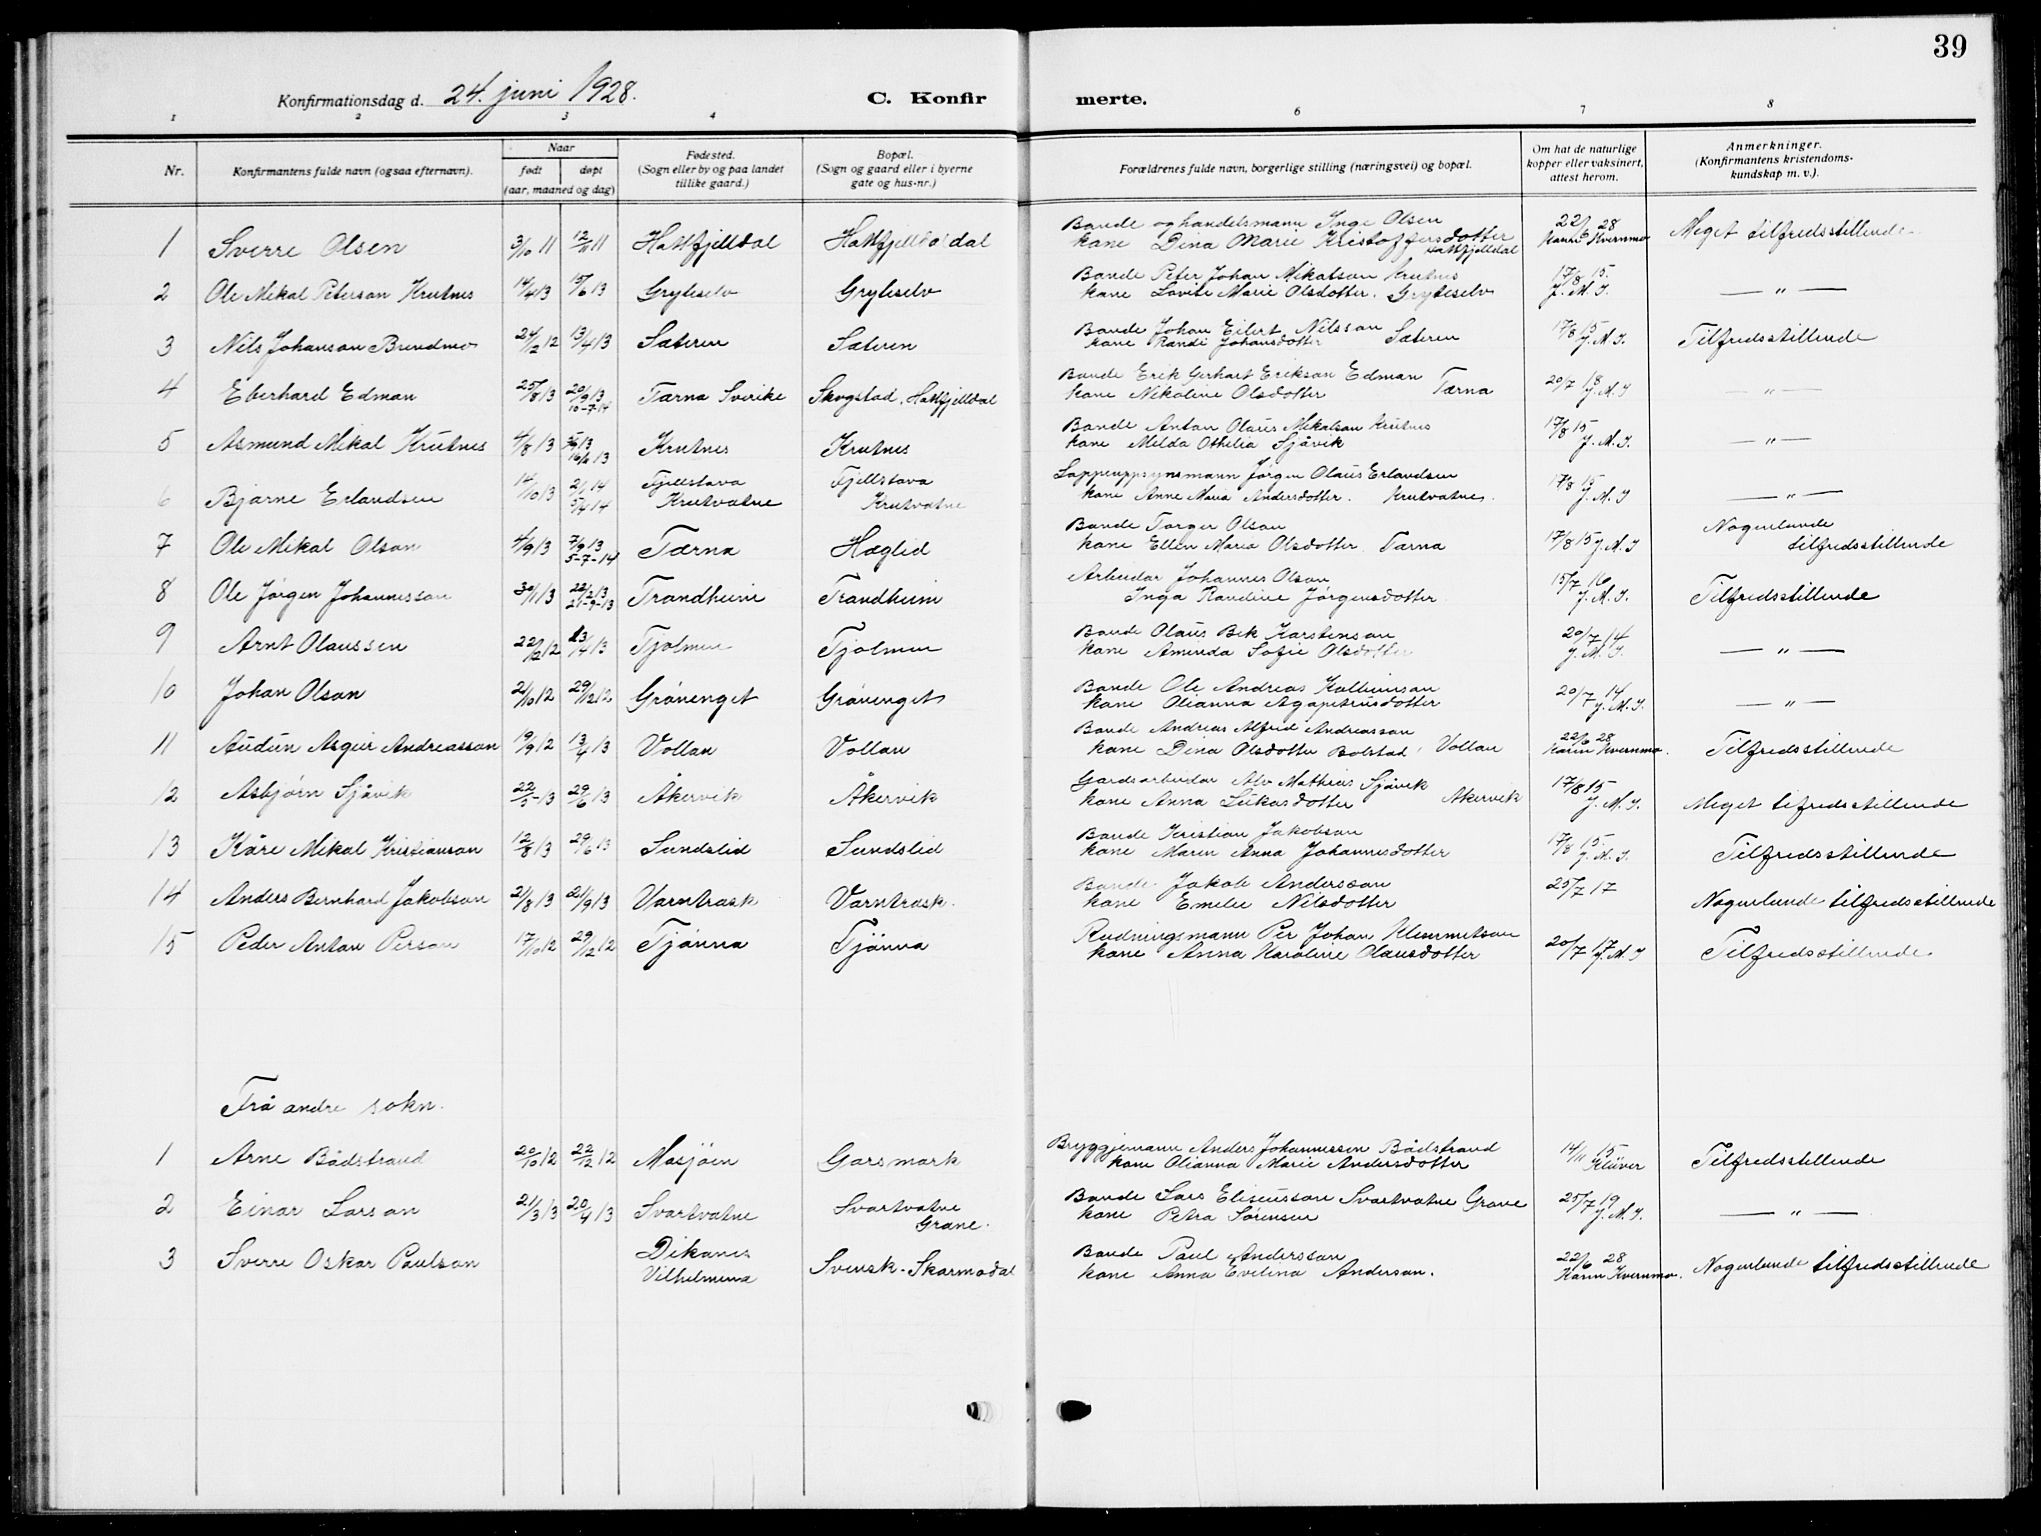 39
Konfirmationsdag d. 24. juni 1928.
C. Konfir merte.
1 2 3 4 6 7 8
Nr. Konfirmantens fulde navn (ogsaa efternavn). Naar født døpt (aar, maaned og dag) Fødested. (Sogn eller by og paa landet tillike gaard.) Bopæl. (Sogn og gaard eller i byerne gate og hus-nr.) Forældrenes fulde navn, borgerlige stilling (næringsvei) og bopæl. Om hat de naturlige kopper eller vaksinert, attest herom. Anmerkninger. (Konfirmantens kristendoms-kundskap m. v.).
1 Sverre Olsen 3/10 11 12/11 11 Hattfjelldal Hattfjelldal Bonde og handelsmann Inge Olsen 22/6 28 Meget tilfredsstillende
kone Dina Marie Kristoffersdotter Hattfjelldal Karin Kvernmo
2 Ole Mikal Peterson Krutnes 14/4 13 15/6 13 Gryteselv Gryteselv Bonde Peter Johan Mikalson Krutnes 17/8 15. — " —
kone Lovise Marie Olsdotter. Gryteselv J. M. J.
3 Nils Johanson Brendmo 24/12 12 13/4 13 Sæteren Sæteren Bonde Johan Eilert Nilsson Sæteren 17/8 15 Tilfredsstillende
kone Randi Johansdotter J. M. J.
4 Eberhard Edman 25/8 13 20/9 13 Tærna Sverike Skogstad, Hattfjelldal Bonde Erik Gerhart Erikson Edman Tærna 20/7 18 — " —
10-7-14 kone Nikoline Olsdotter J. M. J
5 Asmund Mikal Krutnes 4/8 13 Krutnes Krutnes Bonde Anton Olaus Mikalson Krutnes 17/8 15 — " —
kone Melda Othelia Sjåvik J. M. J.
6 Bjarne Erlandsen 14/10 13 2/1 14 Fjellstova Fjellstova Lappeoppsynsmann Jørgen Olaus Erlandsen 17/8 15 — " —
5/4 14 Krutvatne Krutvatne kone Anne Maria Andersdotter. Krutvatnes. J. M. J
7 Ole Mikal Olson 4/9 13 7/9 13 Tærna Hæglid Bonde Torger Olson 17/8 15 Nogenlunde
5-7-14 kone Ellen Maria Olsdotter. Tærna J. M. J tilfredsstillende
8 Ole Jørgen Johannesson 30/11 13 22/12 13 Trondheim Trondheim Arbeidar Johannes Olson 15/7 16 Tilfredsstillende
21-9-13 Inga Randine Jørgensdotter J. M. J.
9 Arnt Olaussen 22/12 12 13/4 13 Tjolmen Tjolmen Bonde Olaus Bek Karstenson 20/7 14 — " —
kone Aminda Sofie Olsdotter J. M. J.
10 Johan Olson 2/10 12 29/12 12 Grönenget Grönenget Bonde Ole Andreas 20/7 14 — " —
kone Olianna Agapetrusdotter J. M. J.
11 Audun Asgeir Andreasson 19/9 12 13/4 13 Vollan Vollan Bonde Andreas Alfred Andreasson 22/6 28 Tilfredsstillende
kone Dina Olsdotter Bolstad, Vollan Karin Kvernmo.
12 Asbjørn Sjåvik 22/5-13 29/6 13 Åkervik Åkervik Gardsarbeidar Alv Mathias Sjåvik Åkervik 17/8 15 Meget tilfredsstillende
kone Anna Lukasdotter J. M. J.
13 Kåre Mikal Kristianson 12/8 13 29/6 13 Sundslid Sundslid Bonde Kristian Jakobson 17/8 15 Tilfredsstillende
kone Maren Anna Johannesdotter J. M. J.
14 Anders Bernhard Jakobson 21/8 13 21/9 13 Varntrask Varntrask. Bonde Jakob Andersson 25/7 17 Nogenlunde tilfredsstillende
kone Emelie Nilsdotter
15 Peder Anton Person 17/10 12 29/12 12 Tjönna Tjönna Rudningsmann Per Johan 20/7 17 Tilfredsstillende.
kone Anna Karoline Olausdotter J. M. J
Frå andre sokn.
1 Arne Bådstrand 20/10 12 22/12 12 Mosjøen Garsmark Bryggjemann Anders Johannessen Bådstrand 14/11 15 Tilfredsstillende
kone Olianna Marie Andersdotter Klüver
2 Einar Larson 21/3 13 20/4 13 Svartvatne Svartvatne Bonde Lars Eliseusson Svartvatne Grane 25/7 19 — " —
Grane. kone Petra Sørensen J. M. J.
3 Sverre Oskar Paulson Dikanes Svensk-Skarmodal Bonde Paul Andersson 22/6 28 Nogenlunde tilfredsstillende
Vilhelmina kone Anna Evelina Anderson. Karin Kvernmo.